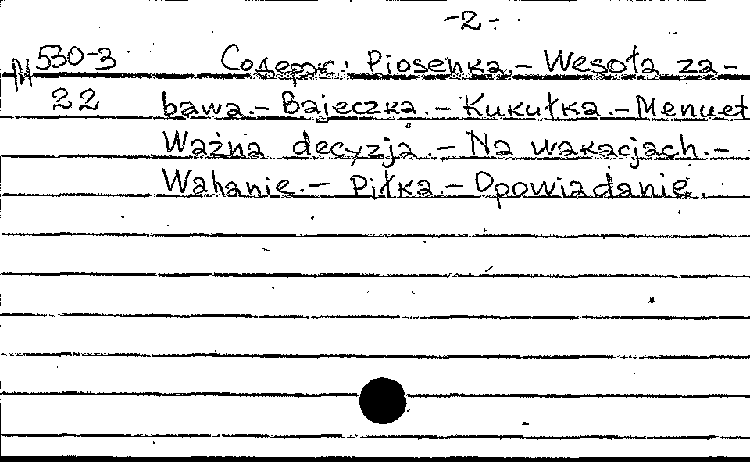 -2-
М 530-3 Содерж: Piosenka.- Wesoła za-
22 bawa.- Bajeczka.- Kukułka.- Menuet
Ważna decyzja.- Na wakacjach.-
Wahanie.- Piłka.- Opowiadanie.